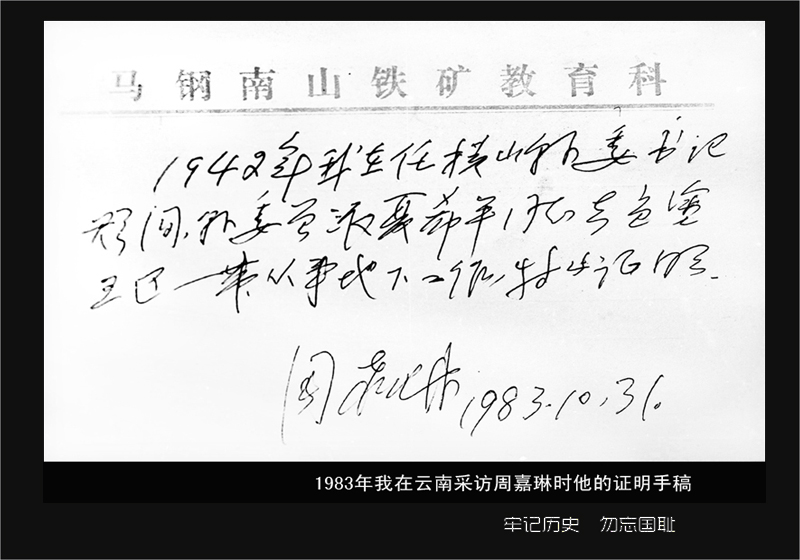 马钢南山铁矿教育科
1942年我在任横山县委书记
期间,县委曾派夏希平同志去包墪
王区一带从事地下工作,特此证明.
周嘉琳1983.10.31.
1983年我在云南采访周嘉琳时他的证明手稿
牢记历史 勿忘国耻